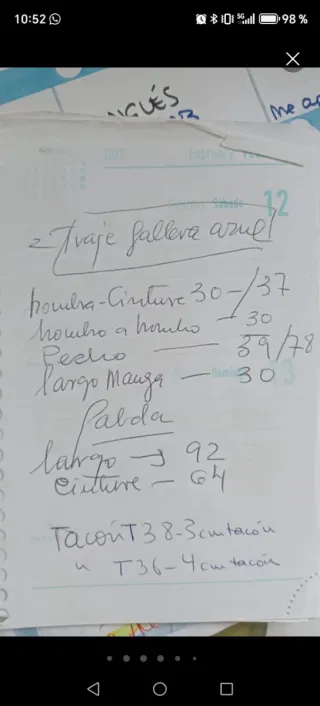 10:52
5G
98 %
INGLÉS
me a
2022
February
Sábado 12
= Traje fallera azul
hombro-Cintura 30-/37
hombro a hombro - 30
Pecho — 39/78
largo Manga — 30
13
Falda
largo → 92
Cintura — 64
Tacón T38-3cm tacón
" T36-4cm tacón